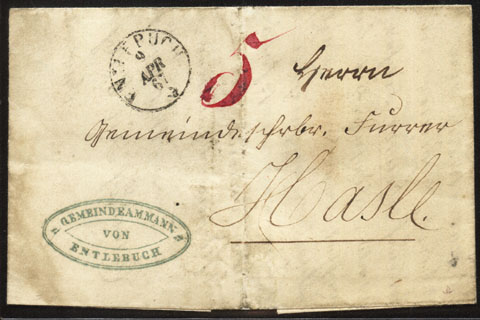 ENTLEBUCH
9
APR
61
5
Herrn
Gemeindeschrbr. Furrer
Hasle.
GEMEINDEAMMANN
VON
ENTLEBUCH